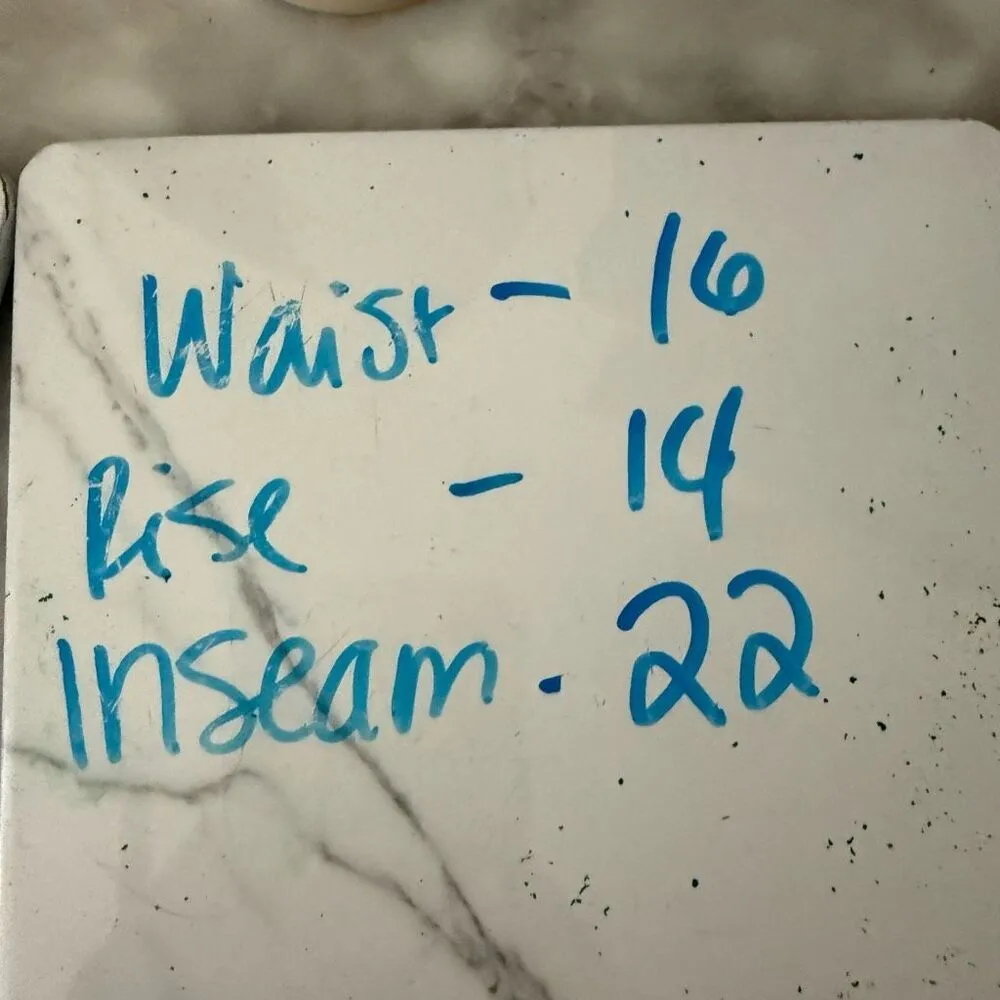 Waist - 16
Rise - 14
Inseam - 22